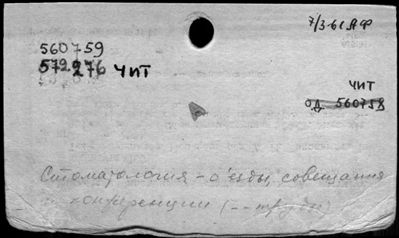 7/3-61
560759
572276 ЧИТ
ЧИТ
од 560758
Стоматология - съезды, совещания
конференции (-- труды)